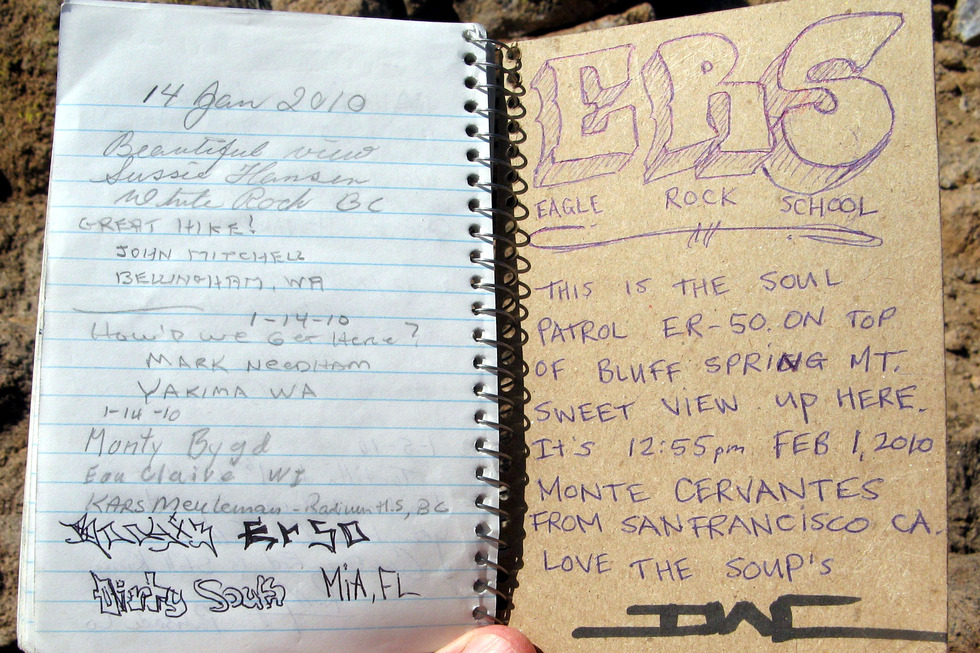 14 Jan 2010
Beautiful view
Sussie Hansen
White Rock BC
GREAT HIKE!
JOHN MITCHELL
BELLINGHAM, WA
1-14-10
How'D we Get Here?
MARK NeeDHAM
YAKIMA WA
1-14-10
Monty Bygd
Eau Claire WI
KARS Meuleman - Radium H.S, BC
Er 50
Dirty South MiA, FL
ERS
EAGLE ROCK SCHOOL
THIS IS THE SOUL
PATROL ER-50. ON TOP
OF BLUFF SPRiNG MT.
SWEET VIEW up HERE.
It's 12:55pm FEB 1, 2010
MONTE CERVANTES
FROM SANFRANCiSCO CA.
LOVE THE SOUP's